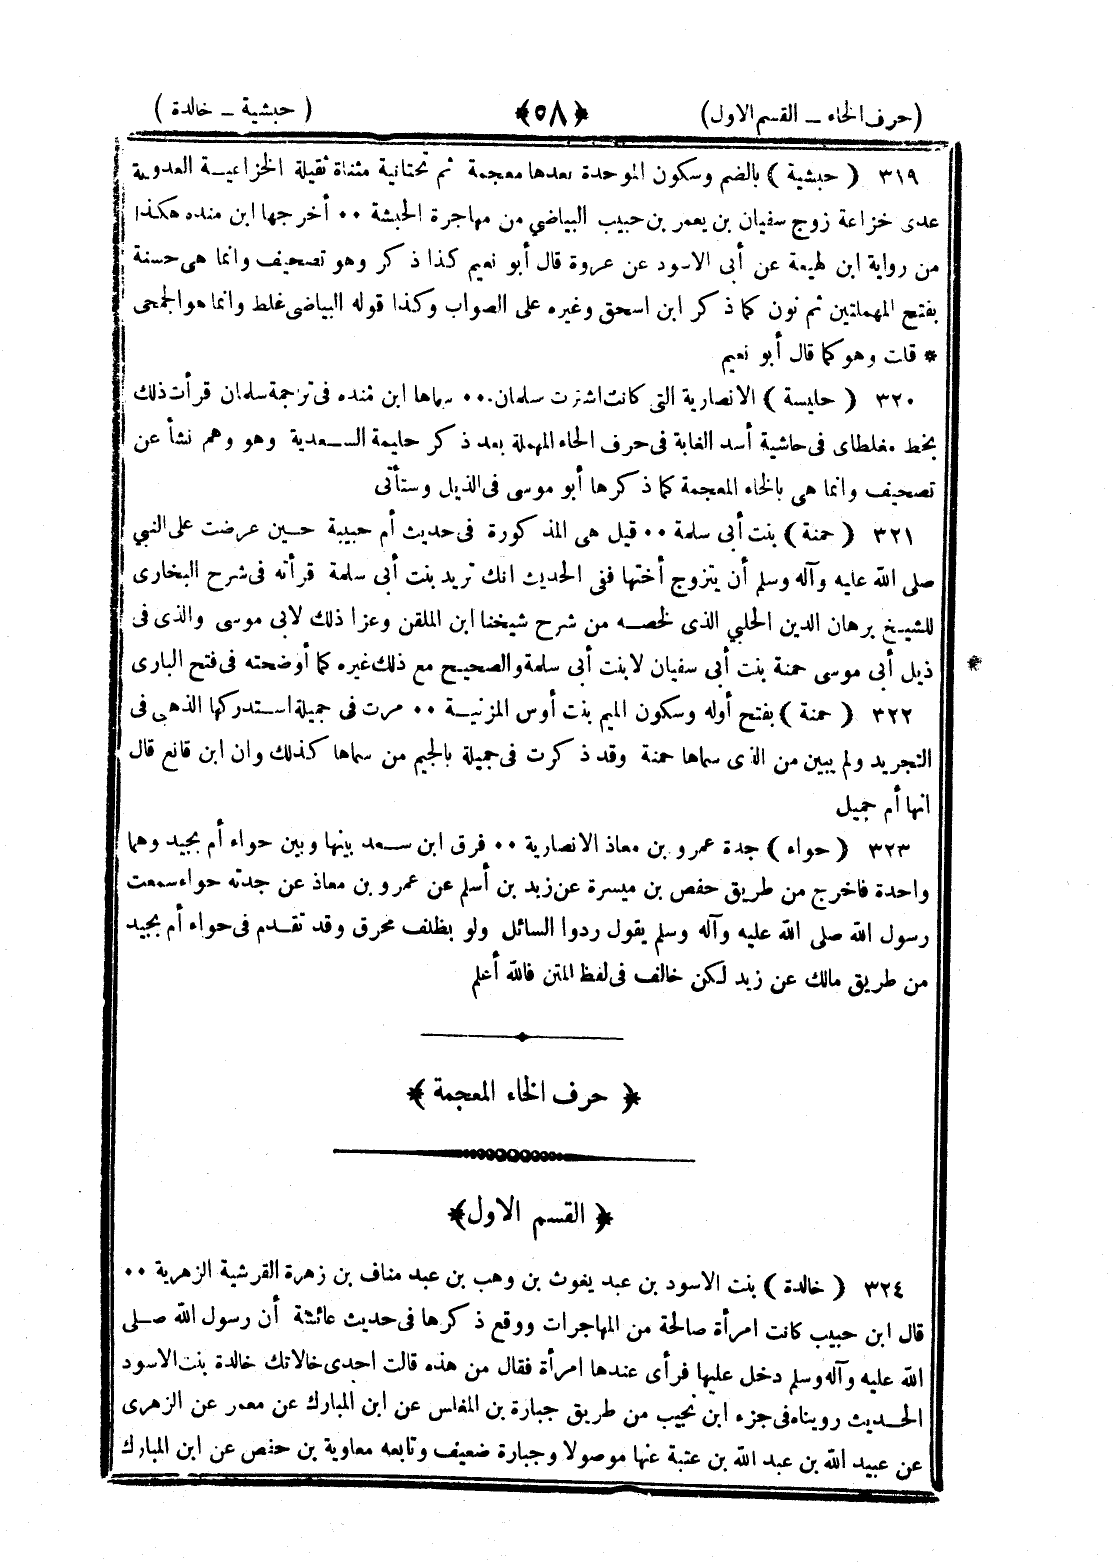 (حرف الخاء ــ القسم الاول) ﴿٥٨﴾ (حبشية ــ خالدة)
٣١٩ ( حبشية ) بالضم وسكون الموحدة بعدها معجمة ثم تحتانية مثناة ثقيلة الخزاعيـة العدوية
عدى خزاعة زوج سفيان بن يعمر بن حبيب البياضي من مهاجرة الحبشة ٠٠ أخرجها ابن منده هكذا
من رواية ابن لهيعة عن أبي الاسود عن عروة قال أبو نعيم كذا ذكر وهو تصحيف وانما هى حسنة
بفتح المهملتين ثم نون كما ذكر ابن اسحق وغيره على الصواب وكذا قوله البياضى غلط وانما هو الجمحى
* قلت وهو كما قال أبو نعيم
٣٢٠ ( حليسة ) الانصارية التى كانت اشترت سلمان ٠٠ سماها ابن منده فى ترجمة سلمان قرأت ذلك
بخط مغلطاى فى حاشية أسد الغابة فى حرف الحاء المهملة بعد ذكر حليمة السـعدية وهو وهم نشأ عن
تصحيف وانما هى بالخاء المعجمة كما ذكرها أبو موسى فى الذيل وستأتى
٣٢١ ( حمنة ) بنت أبى سلمة ٠٠ قيل هى المذكورة فى حديث أم حبيبة حـين عرضت على النبي
صلى الله عليه وآله وسلم أن يتزوج أختها ففى الحديث انك تريد بنت أبى سلمة قرأته فى شرح البخارى
للشيخ برهان الدين الحلبي الذى لخصـه من شرح شيخنا ابن الملقن وعزا ذلك لابى موسى والذى فى
ذيل أبى موسى حمنة بنت أبى سفيان لا بنت أبى سلمة والصحيح مع ذلك غيره كما أوضحته فى فتح البارى
٣٢٢ ( حمنة ) بفتح أوله وسكون الميم بنت أوس المزنيـة ٠٠ مرت فى جميلة استدركها الذهبى فى
التجريد ولم يبين من الذى سماها حمنة وقد ذكرت فى جميلة بالجيم من سماها كذلك وان ابن قانع قال
انها أم جميل
٣٢٣ ( حواء ) جدة عمرو بن معاذ الانصارية ٠٠ فرق ابن سـعد بينها وبين حواء أم بجيد وهما
واحدة فاخرج من طريق حفص بن ميسرة عن زيد بن أسلم عن عمرو بن معاذ عن جدته حواء سمعت
رسول الله صلى الله عليه وآله وسلم يقول ردوا السائل ولو بظلف محرق وقد تقـدم فى حواء أم بجيد
من طريق مالك عن زيد لكن خالف فى لفظ المتن فالله أعلم
﴿ حرف الخاء المعجمة ﴾
﴿ القسم الاول ﴾
٣٢٤ ( خالدة ) بنت الاسود بن عبد يغوث بن وهب بن عبد مناف بن زهرة القرشية الزهرية ٠٠
قال ابن حبيب كانت امرأة صالحة من المهاجرات ووقع ذكرها فى حديث عائشة أن رسول الله صـلى
الله عليه وآله وسلم دخل عليها فرأى عندها امرأة فقال من هذه قالت احدى خالاتك خالدة بنت الاسود
الحـديث رويناه فى جزء ابن نجيب من طريق جبارة بن المغلس عن ابن المبارك عن معمر عن الزهرى
عن عبيد الله بن عبد الله بن عتبة عنها موصولا وجبارة ضعيف وتابعه معاوية بن حفص عن ابن المبارك